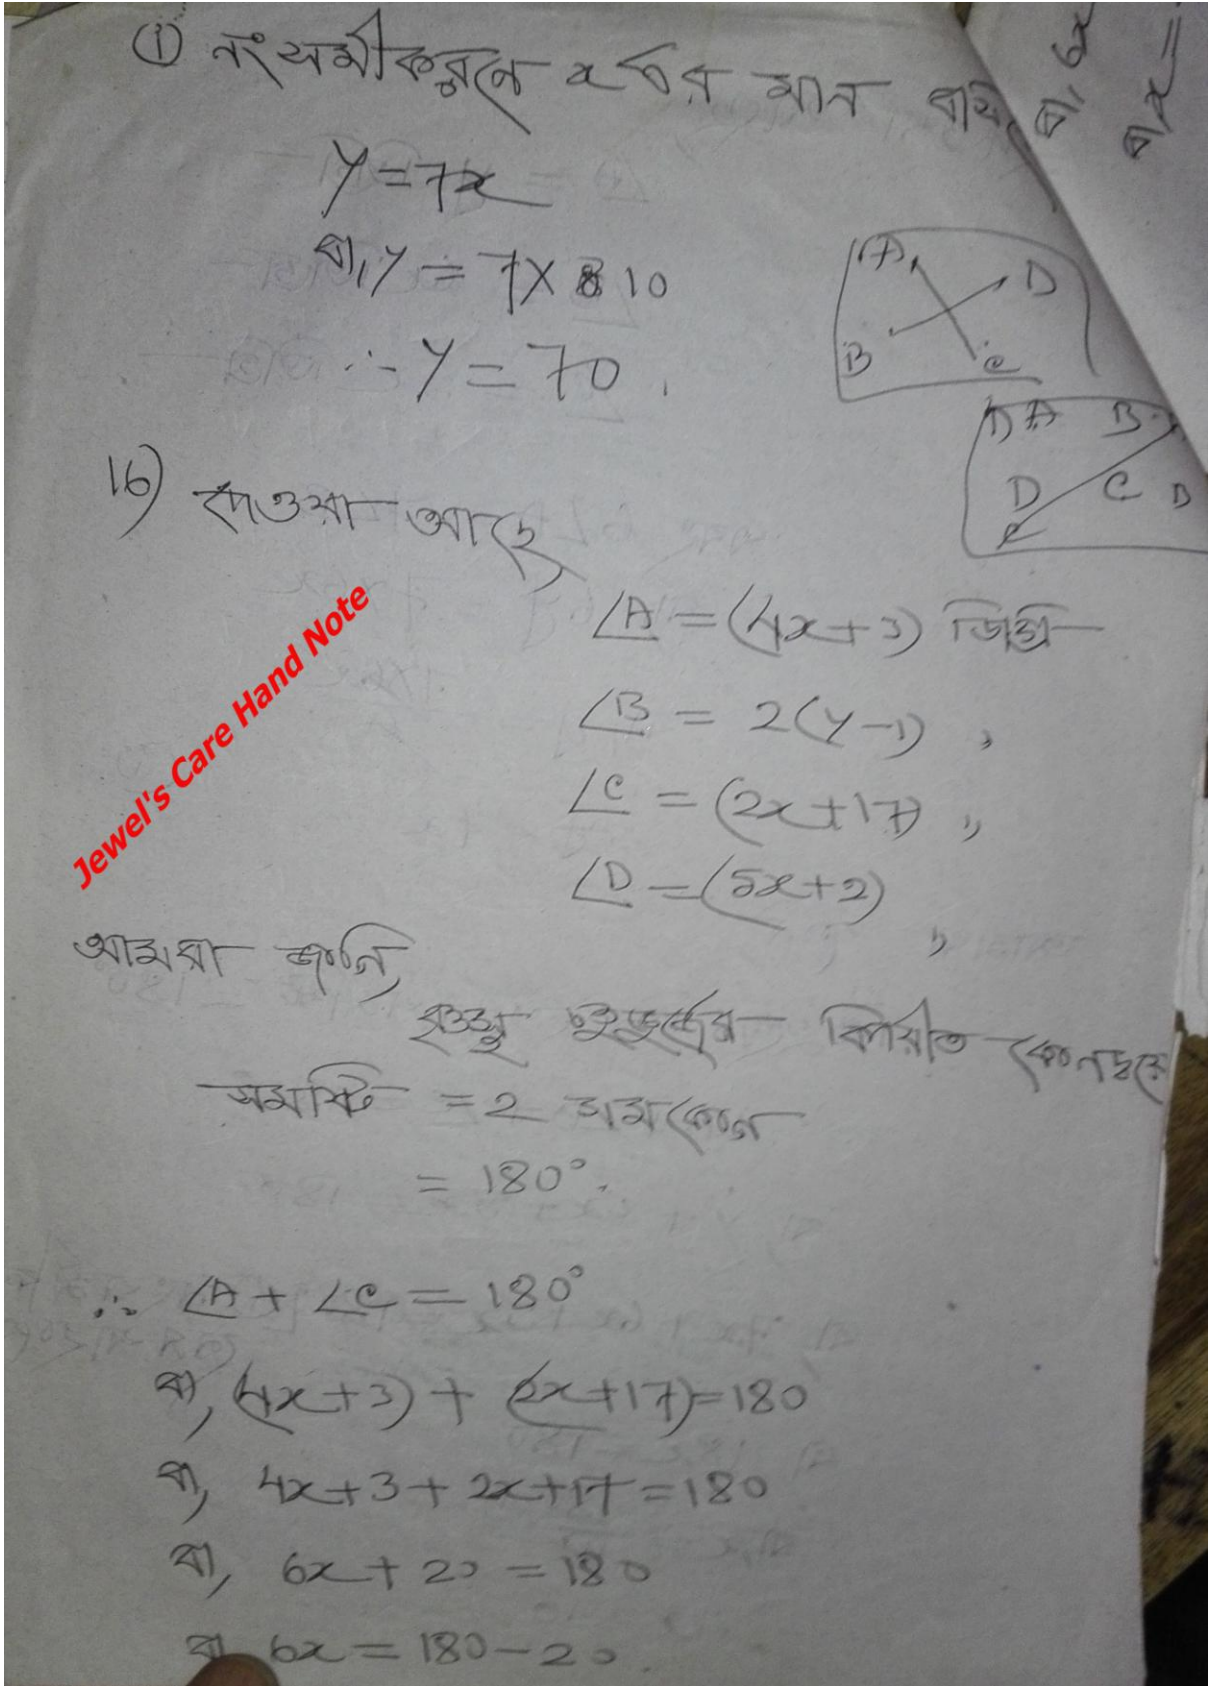 ① নং সমীকরনে x এর মান বসিয়ে
y = 7x
বা, y = 7 × 10
∴ y = 70.
A D
B C
A B
D C B
16) দেওয়া আছে,
∠A = (4x+3) ডিগ্রি
∠B = 2(y-1) ,,
∠C = (2x+17) ,,
∠D = (5x+2) ,,
Jewel's Care Hand Note
আমরা জানি,
বৃত্তস্থ চতুর্ভুজের বিপরীত কোনদ্বয়ের
সমষ্টি = 2 সমকোণ
= 180°.
∴ ∠A + ∠C = 180°
বা, (4x+3) + (2x+17) = 180
বা, 4x+3+2x+17 = 180
বা, 6x+20 = 180
বা, 6x = 180-20.
বা, 6x
বা, x =